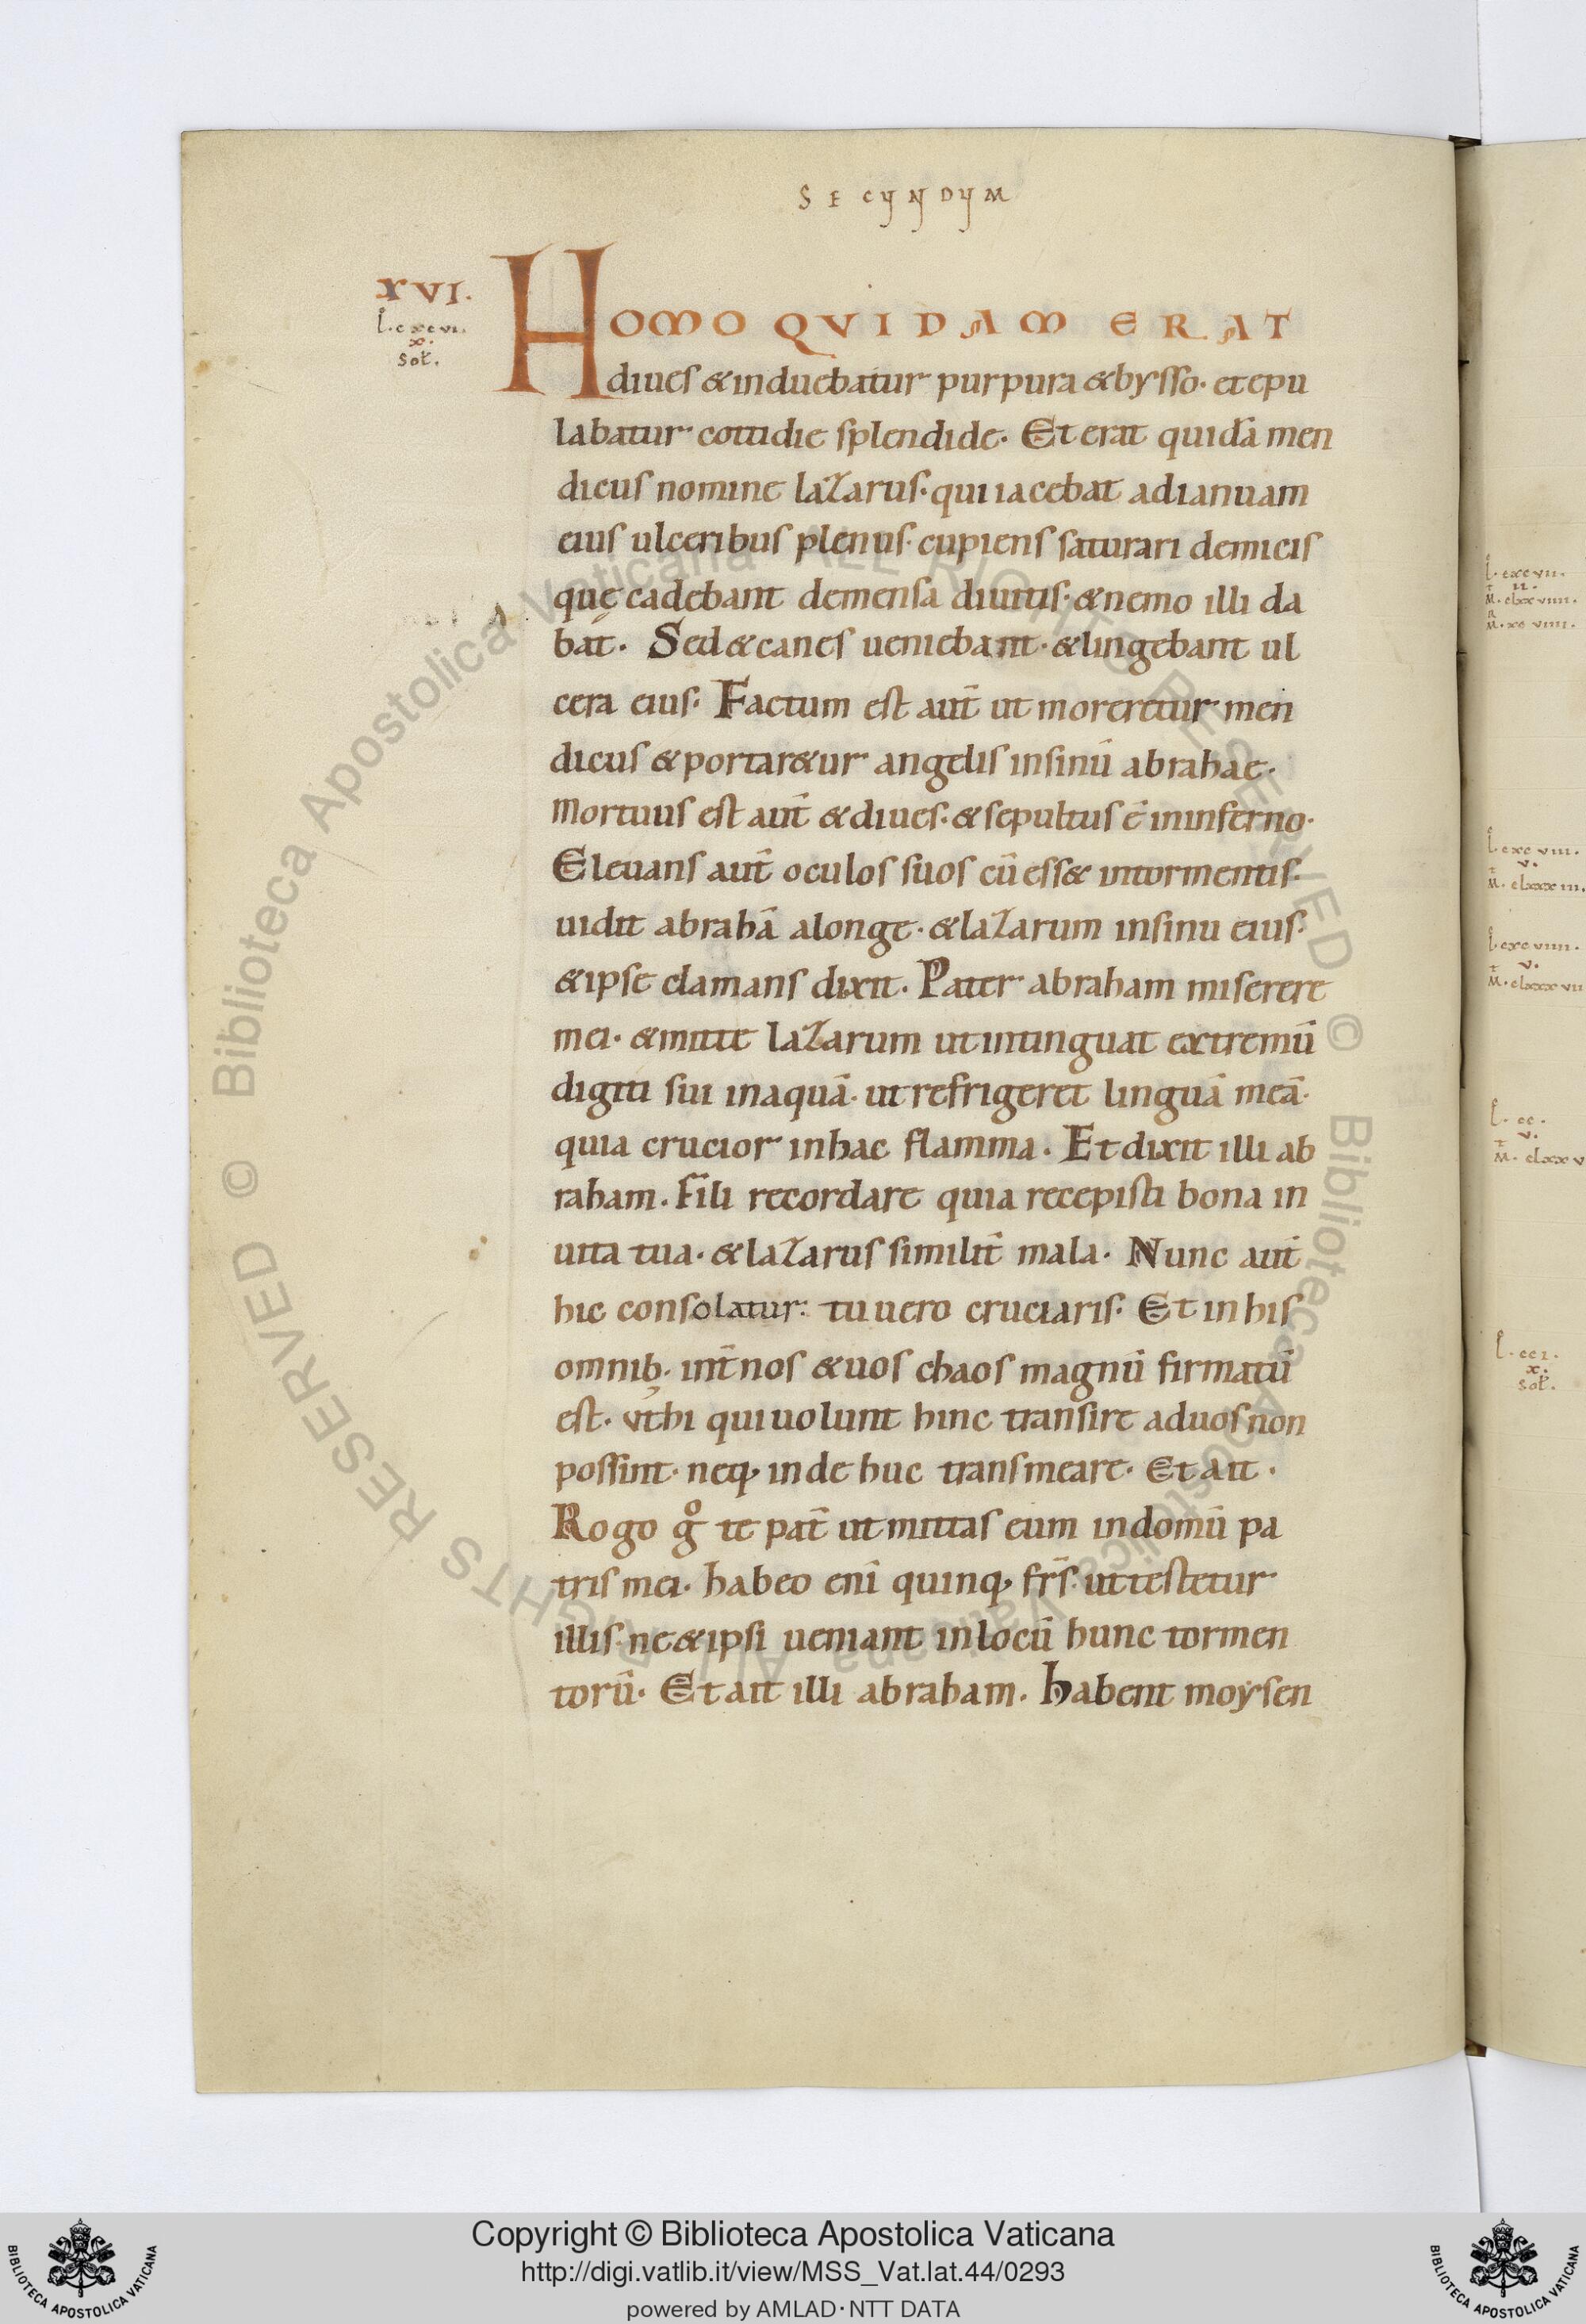 SECUNDUM
XVI.
L. cxcvi.
x.
Sol̄.
HOMO QVIDAM ERAT
diues & induebatur purpura & bysso. et epu
labatur cottidie splendide. Et erat quidā men
dicus nomine lazarus. qui iacebat ad ianuam
eius ulceribus plenus. cupiens saturari de micis
quę cadebant de mensa diuitis. & nemo illi da
bat. Sed & canes ueniebant. & lingebant ul
cera eius. Factum est aut̄ ut moreretur men
dicus & portar&ur angelis in sinū abrahae.
Mortuus est aut̄ & diues. & sepultus ē in inferno.
Eleuans aut̄ oculos suos cū ess& in tormentis.
uidit abrahā a longe. & lazarum in sinu eius.
& ipse clamans dixit. Pater abraham miserere
mei. & mitte lazarum ut intinguat extremū
digiti sui in aquā. ut refrigeret linguā meā.
quia crucior in hac flamma. Et dixit illi ab
raham. Fili recordare quia recepisti bona in
uita tua. & lazarus similit̄ mala. Nunc aut̄
hic consolatur. tu uero cruciaris. Et in his
omnib; int̄ nos & uos chaos magnū firmatū
est. vt hi qui uolunt hinc transire ad uos non
possint. neq; inde huc transmeare. Et ait.
Rogo gͦ te pat̄ ut mittas eum in domū pa
tris mei. habeo enī quinq; fr̄s. ut testetur
illis. ne & ipsi ueniant in locū hunc tormen
torū. Et ait illi abraham. habent moysen
L. cxcvii.
II.
M. clxxviiii.
M. xcviiii.
L. cxcviii.
v.
M. clxxxiii.
L. cxcviiii.
v.
M. clxxxvii
L. cc.
v.
M. clxxv
L. cci.
x.
Sol̄.
© Biblioteca Apostolica Vaticana ALL RIGHTS RESERVED © Biblioteca Apostolica Vaticana ALL RIGHTS RESERVED
Copyright © Biblioteca Apostolica Vaticana
http://digi.vatlib.it/view/MSS_Vat.lat.44/0293
powered by AMLAD·NTT DATA
BIBLIOTECA APOSTOLICA VATICANA
BIBLIOTECA APOSTOLICA VATICANA